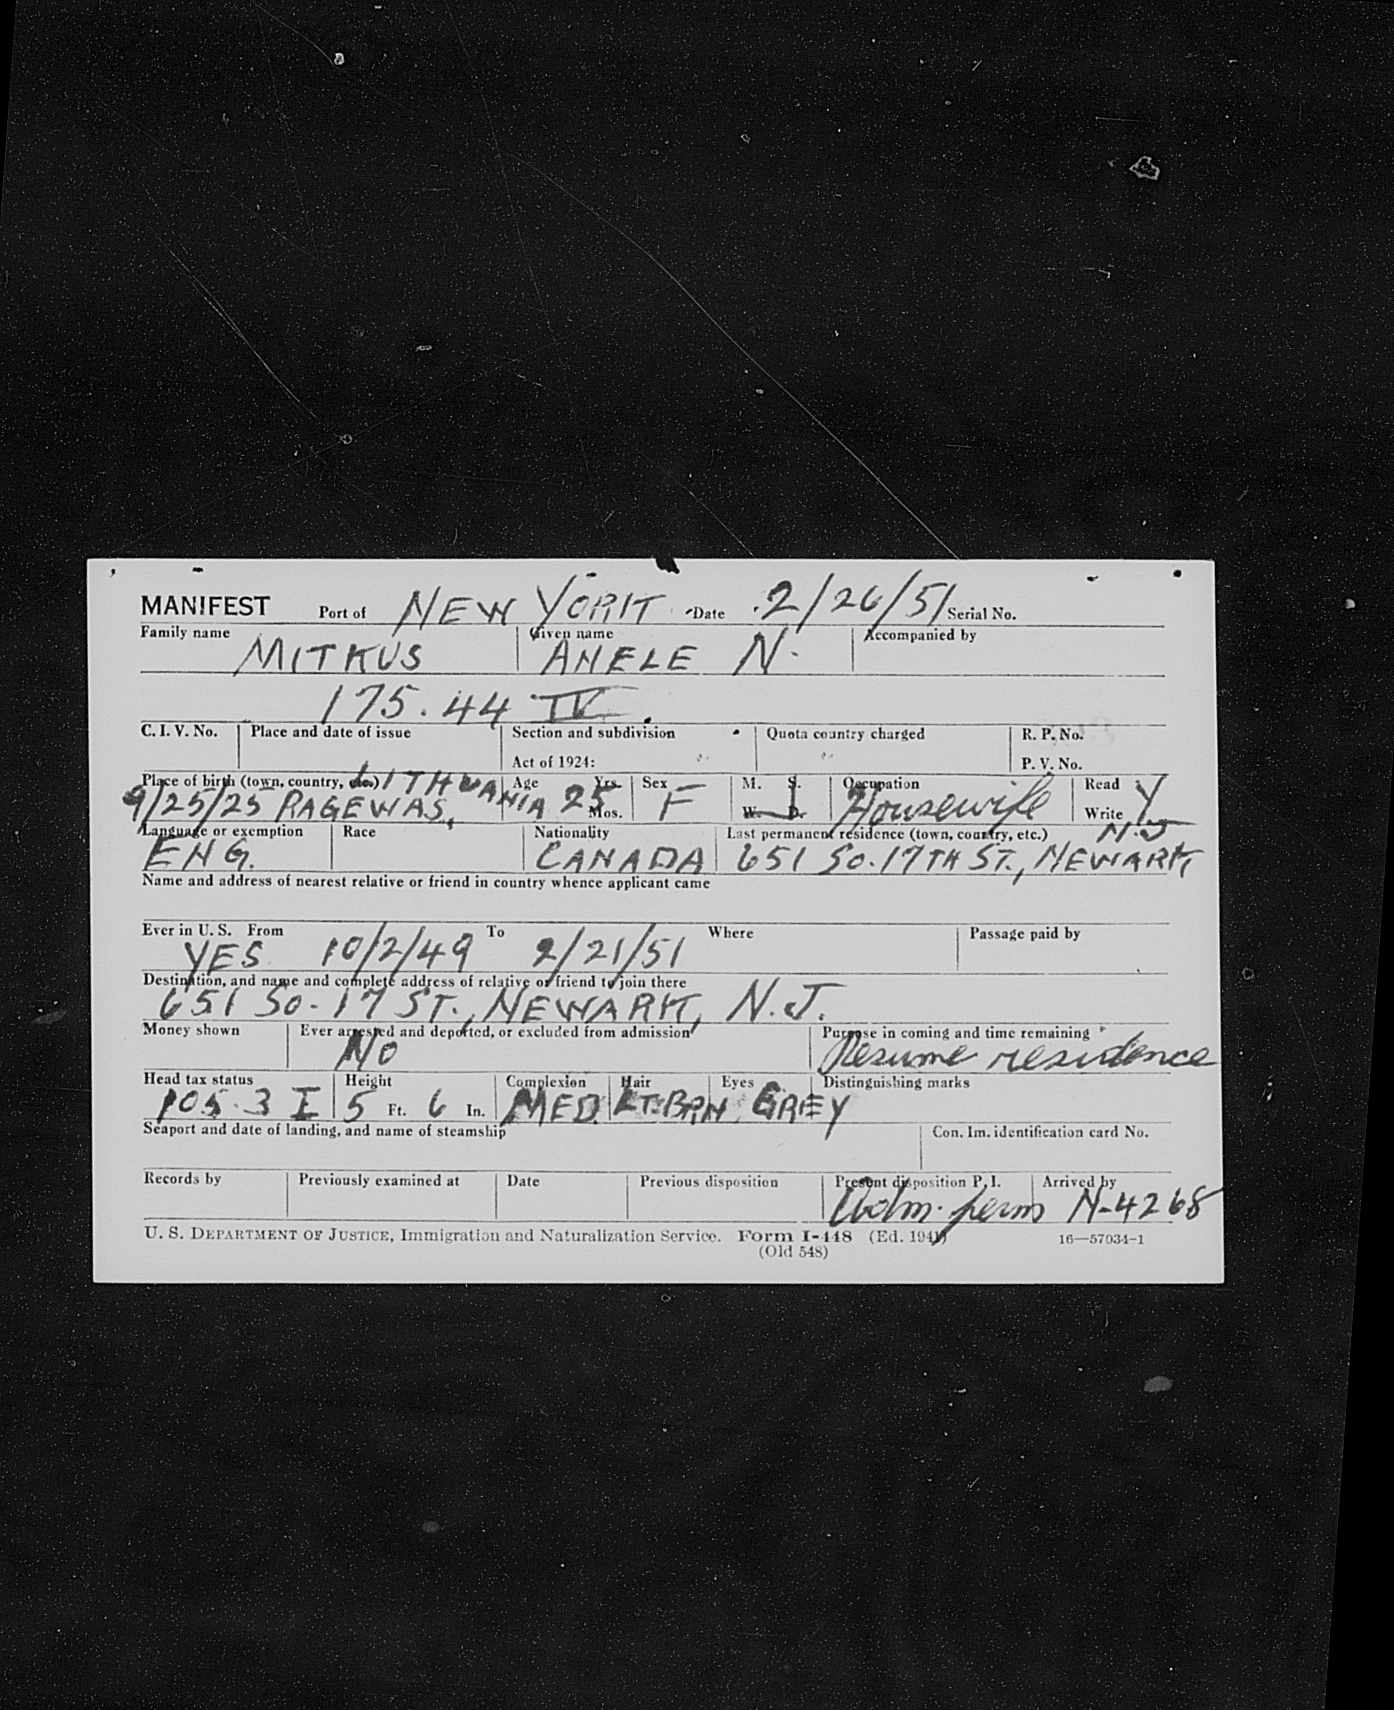 MANIFEST Port of NEW YORK Date 2/26/51 Serial No.
Family name Given name Accompanied by
MITKUS ANELE N.
175.44 IV.
C. I. V. No. Place and date of issue Section and subdivision Quota country charged R. P. No.
Act of 1924: P. V. No.
Place of birth (town, country, etc.) LITHUANIA Age Yrs. Sex M. S. Occupation Read Y
9/25/25 RAGEWAS, 25 Mos. F W. D. Housewife Write
Language or exemption Race Nationality Last permanent residence (town, country, etc.) N.J
ENG. CANADA 651 SO. 17TH ST., NEWARK,
Name and address of nearest relative or friend in country whence applicant came
Ever in U. S. From To Where Passage paid by
YES 10/2/49 2/21/51
Destination, and name and complete address of relative or friend to join there
651 SO. 17 ST., NEWARK, N.J.
Money shown Ever arrested and deported, or excluded from admission Purpose in coming and time remaining
NO Resume residence
Head tax status Height Complexion Hair Eyes Distinguishing marks
105.3 I 5 Ft. 6 In. MED. LT. BRN. GREY
Seaport and date of landing, and name of steamship Con. Im. identification card No.
Records by Previously examined at Date Previous disposition Present disposition P. I. Arrived by
Adm. perm N-4268
U. S. DEPARTMENT OF JUSTICE, Immigration and Naturalization Service. Form I-448 (Ed. 1941) 16—57034-1
(Old 548)